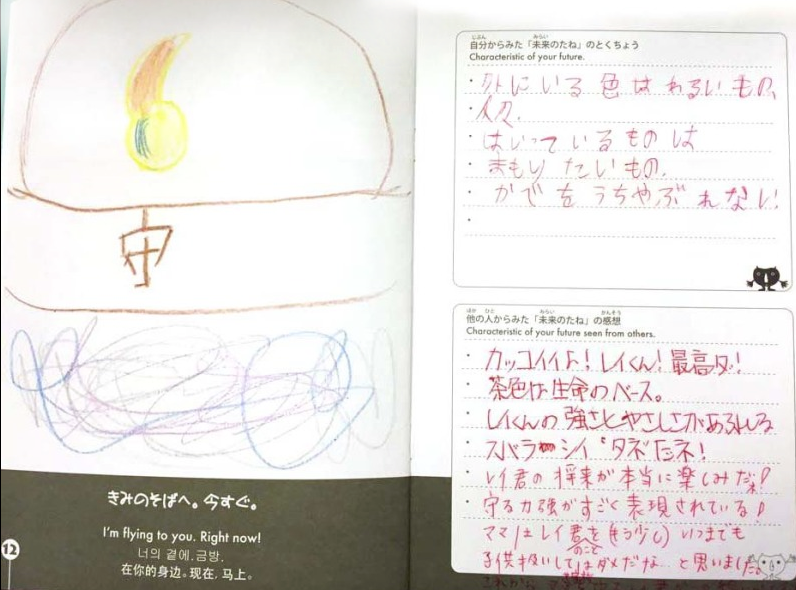 守
きみのそばへ。今すぐ。
I'm flying to you. Right now!
너의 곁에.금방.
在你的身边。现在,马上。
12
じぶん みらい
自分からみた「未来のたね」のとくちょう
Characteristic of your future.
・外にいる色はわるいもの、
・人々。
・はいっているものは
・まもりたいもの。
・かべをうちやぶれない!
・
ほか ひと みらい かんそう
他の人からみた「未来のたね」の感想
Characteristic of your future seen from others.
・カッコイイよ!レイくん!最高ダ!
・茶色は生命のベース。
・レイくんの強さとやさしさがあふれてる
・スバラシイ"タネ"だネ!
・レイ君の将来が本当に楽しみだネ!
・守る力強がすごく表現されている!
・ママはレイ君のことを(もう少し)いつまでも
子供扱いしてはダメだな…と思いました。
これから